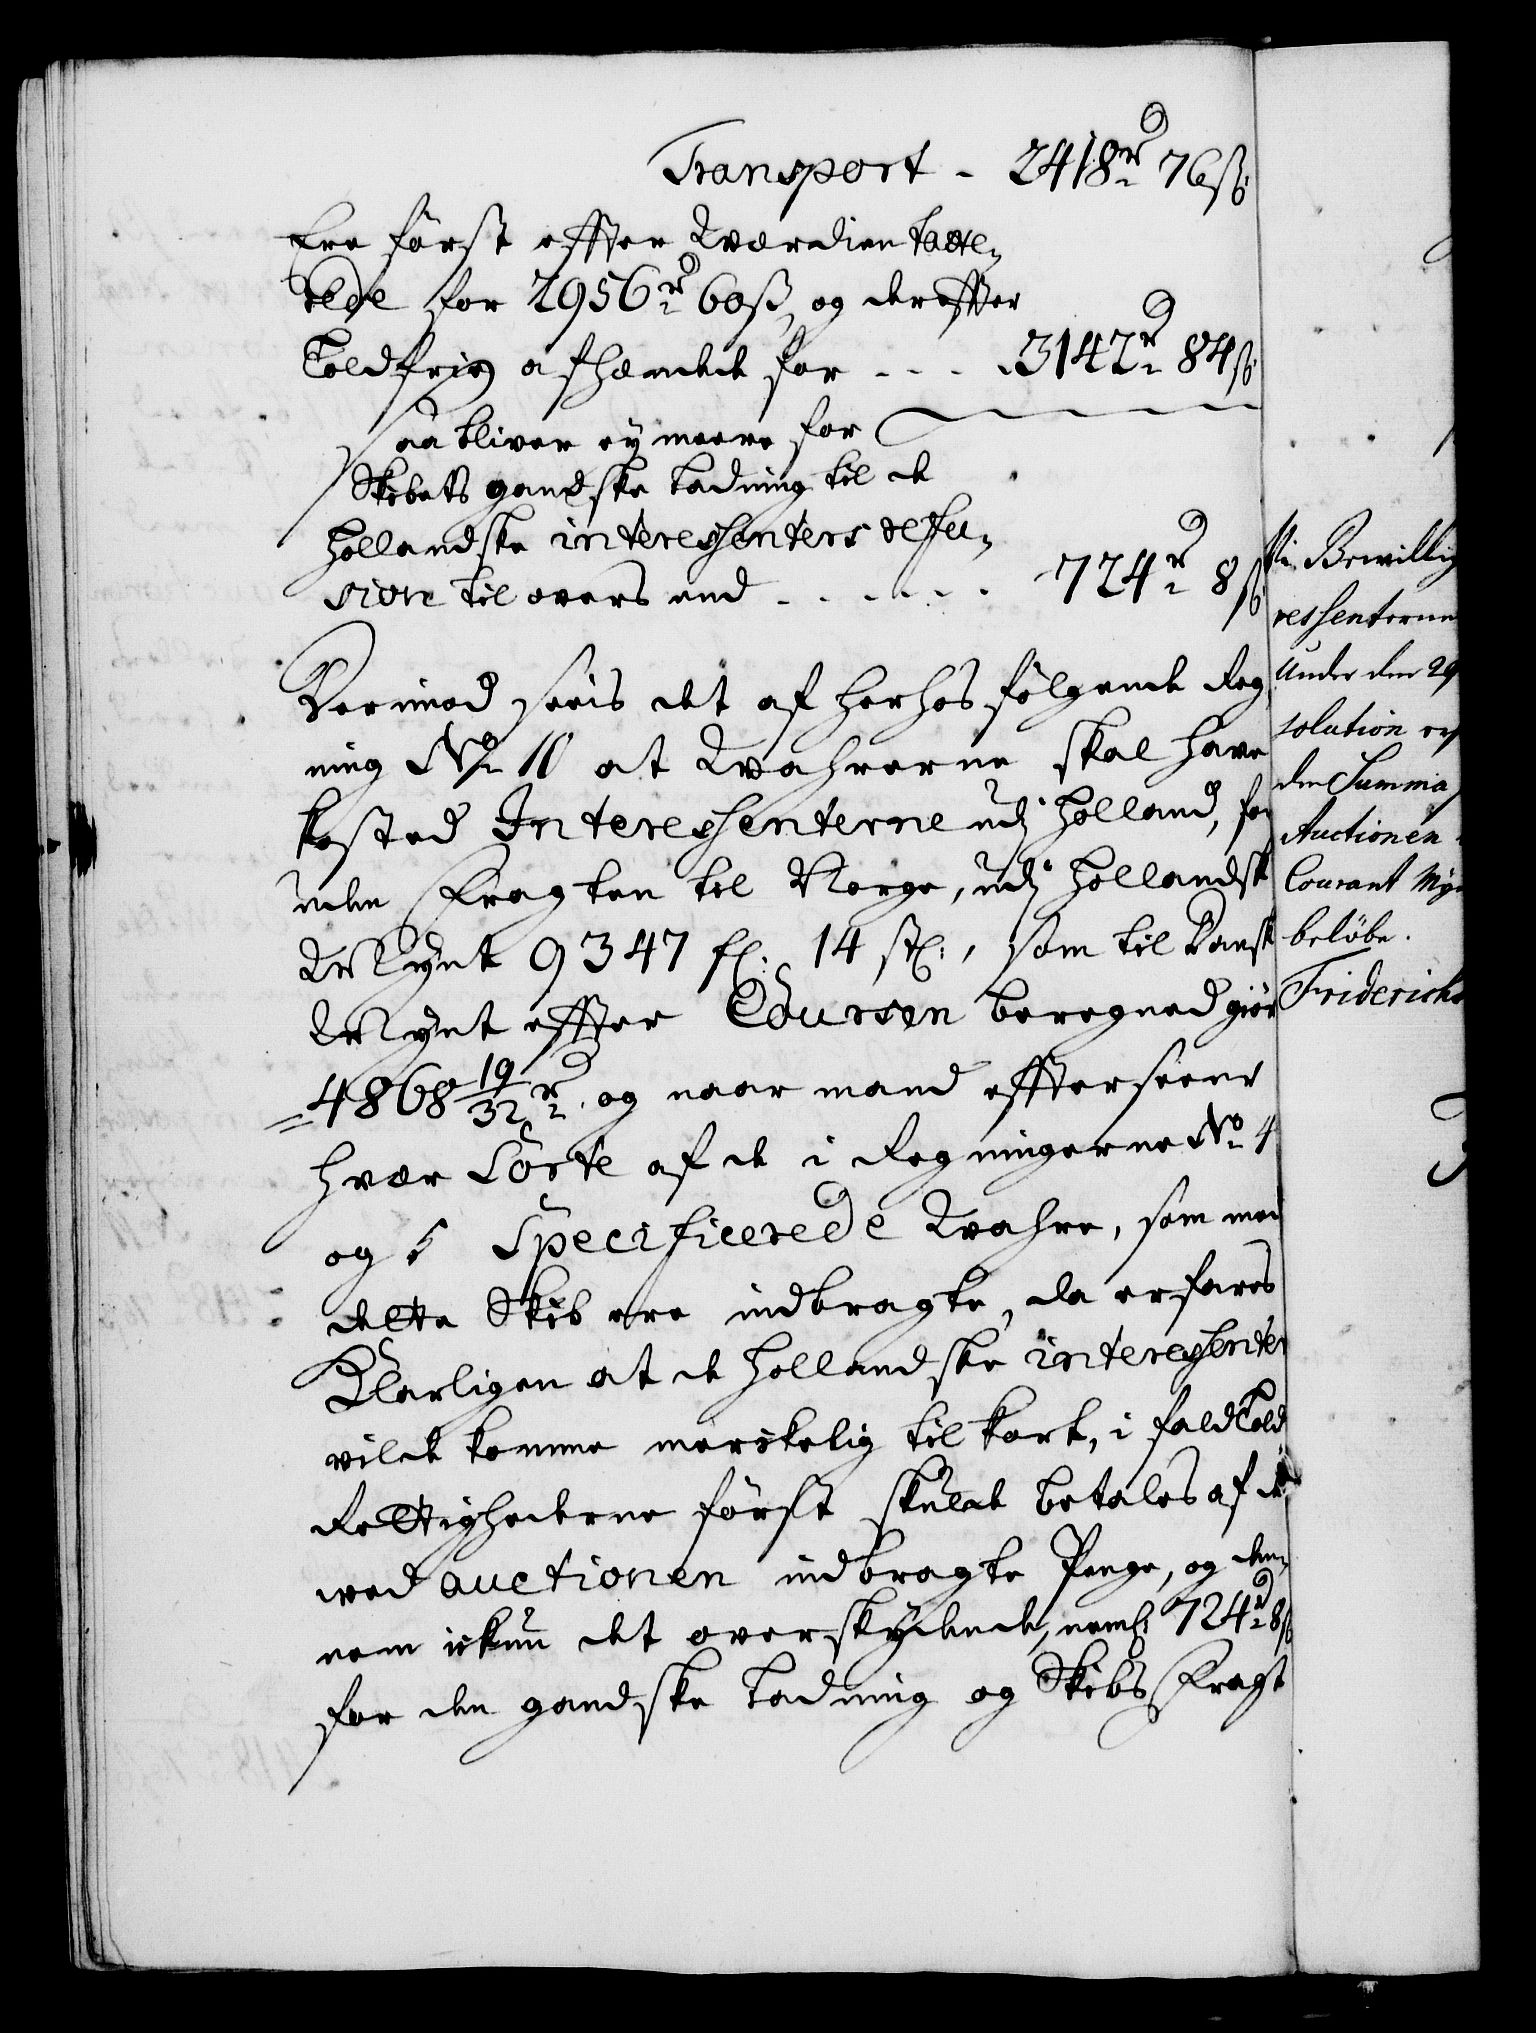 Transport - 2418rd 76ß
Ere först effter Werdien taxte-
rede for 2956rd 60ß, og dereffter
Toldfrie afhændede for - - - 3142rd 84ß
saa bliver ey meere for
Skibets gandske Ladning til de
Hollandske interessenters refu-
sion til overs end - - - - - - 724rd 8ß
Derimod sees det af herhos fölgende Reg
ning No 10 at Wahrerne skal have
kosted Interessenterne udj Holland, for
uden Fragten til Norge, udj Hollandsk
Mynt 9347 fl: 14 st:, som til Dansk
Mynt effter Coursen beregned giör
4868 19/32 rd. og naar mand effterseer
hver Sorte af de i Regningerne No 4
og 5 Specificerede Wahre, som med
dette Skib ere indbragte, da erfares
Klarligen at de Hollandske interessenter
vilde komme merkelig til kort, i fald Told
Rettighederne först skulde betales af de
ved auctionen indbragte Penge, og den-
nem ickun det overskydende, neml: 724rd 8ß
for den gandske Ladning og Skibs Fragt
Bewillig
ressenterne
Under den 29
solution
den Summa
Auctionen
Courant My
belöbe.
Friderichs